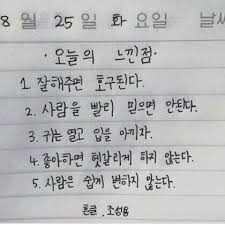 8 월 25 일 화 요일 날씨
· 오늘의 느낀점 ·
1 잘해주면 호구된다.
2. 사람을 빨리 믿으면 안된다.
3. 귀는 열고 입을 아끼자.
4. 좋아하면 헷갈리게 하지 않는다.
5. 사람은 쉽게 변하지 않는다.
흔글 . 조성용